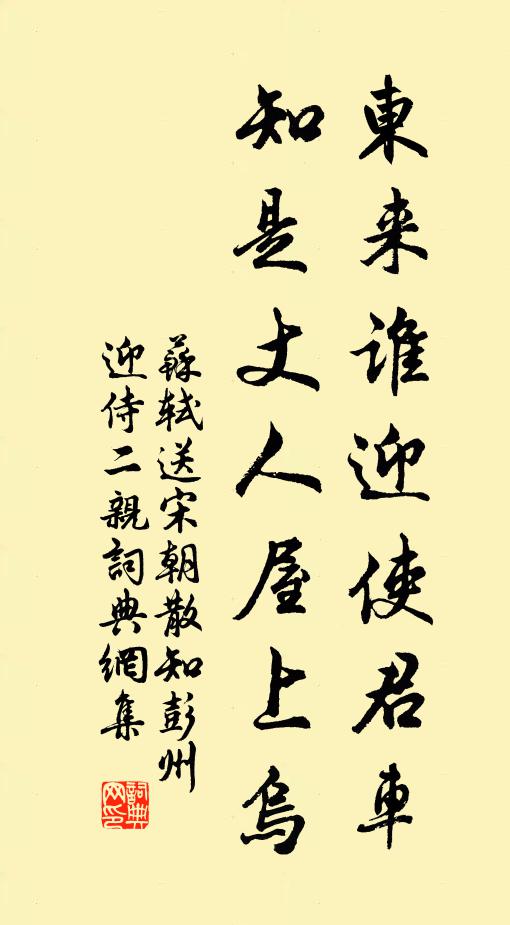 東来誰迎使君車
知是丈人屋上烏
蘇軾送宋朝散知彭州
迎侍二親詞典網集
詞典网印